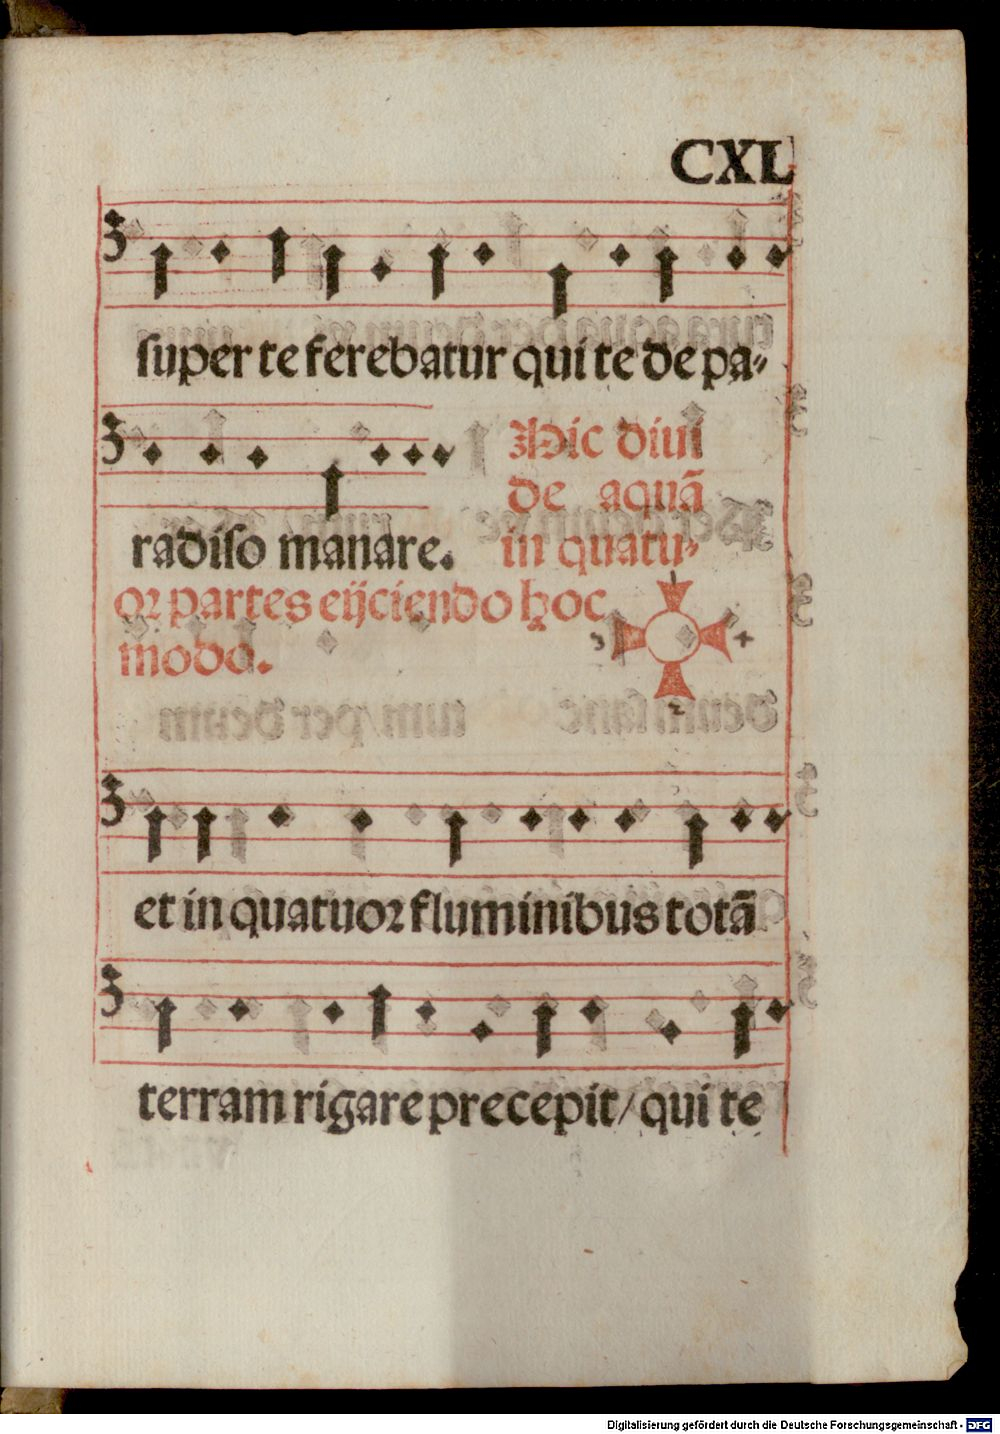 CXL
super te ferebatur qui te de pa-
radiso manare.
Hic diui
de aquã
in quatu-
or partes eijciendo hoc
modo.
1
3 4
2
et in quatuor fluminibus totã
terram rigare precepit/ qui te
Digitalisierung gefördert durch die Deutsche Forschungsgemeinschaft - DFG